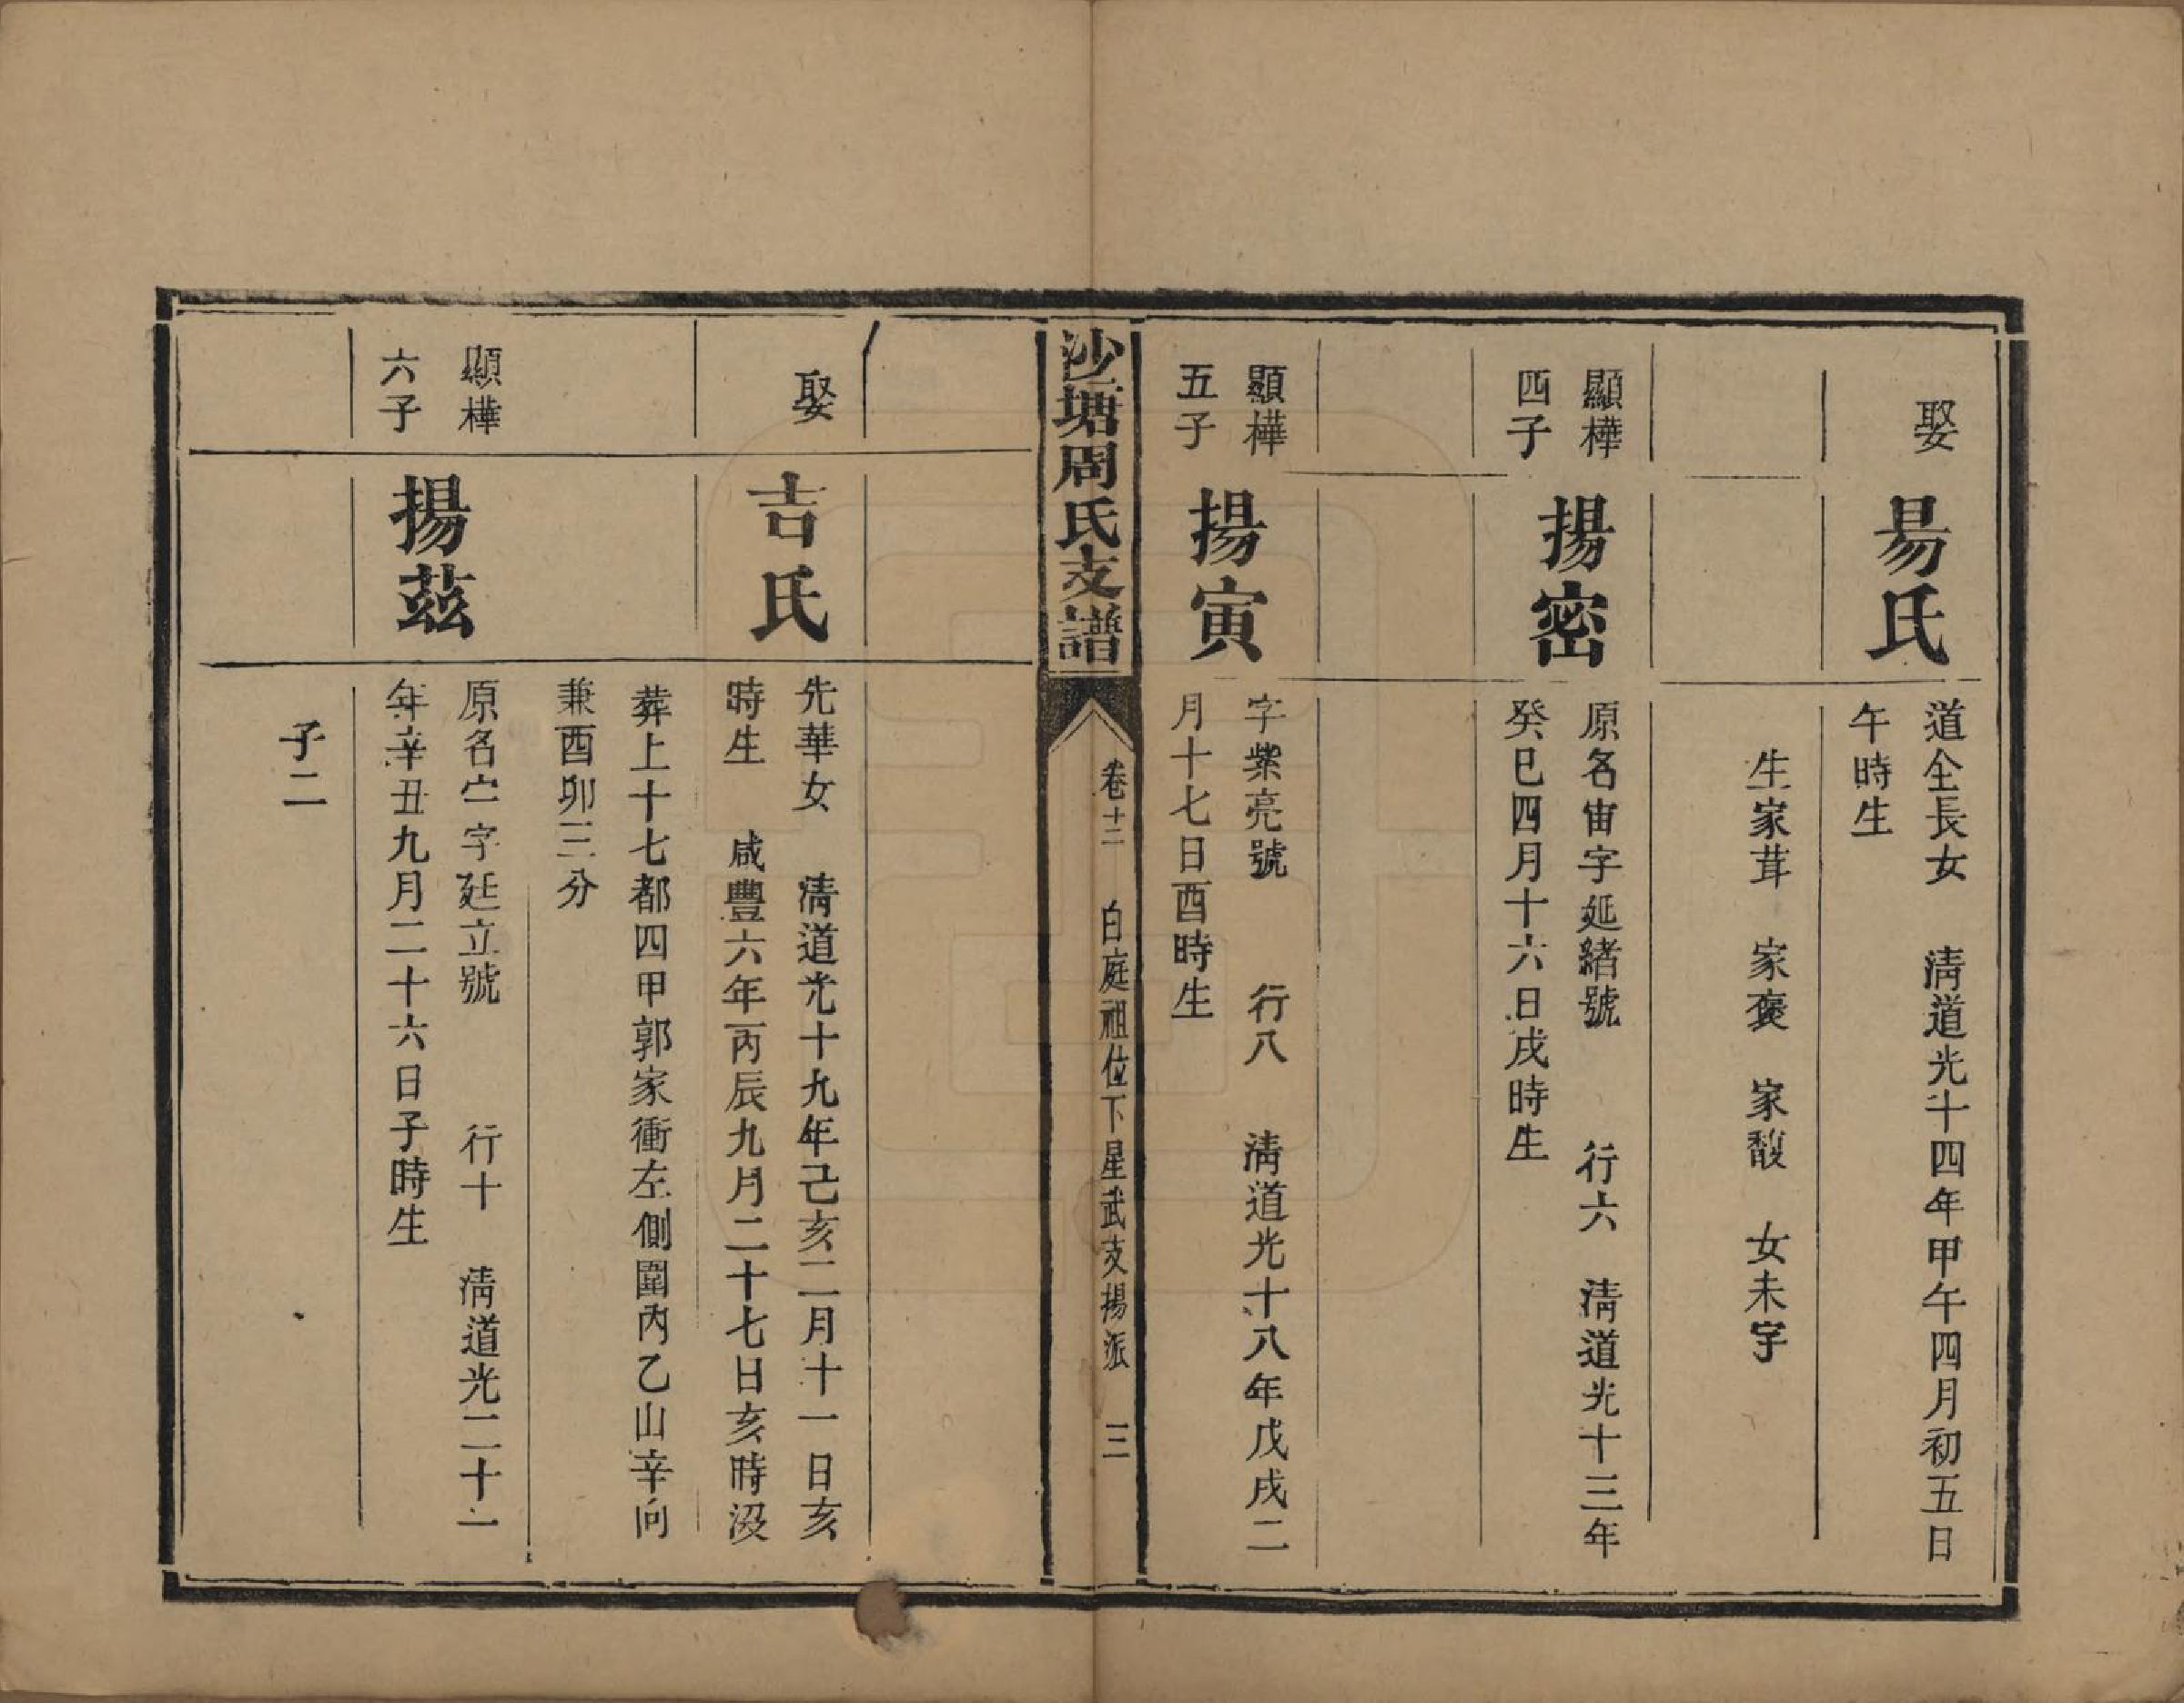 娶
易氏
道全長女 清道光十四年甲午四月初五日
午時生
生家茸 家褒 家馥 女未字
顯樺
四子
揚密
原名宙字延緒號 行六 清道光十三年
癸巳四月十六日戌時生
顯樺
五子
揚寅
字紫亮號 行八 清道光十八年戊戌二
月十七日酉時生
沙塘周氏支譜
卷十二 白庭祖位下星武支揚派 三
娶
吉氏
先華女 清道光十九年己亥二月十一日亥
時生 咸豐六年丙辰九月二十七日亥時没
葬上十七都四甲郭家衝左側圍內乙山辛向
兼酉卯三分
顯樺
六子
揚茲
原名宀字廷立號 行十 清道光二十一
年辛丑九月二十六日子時生
子二